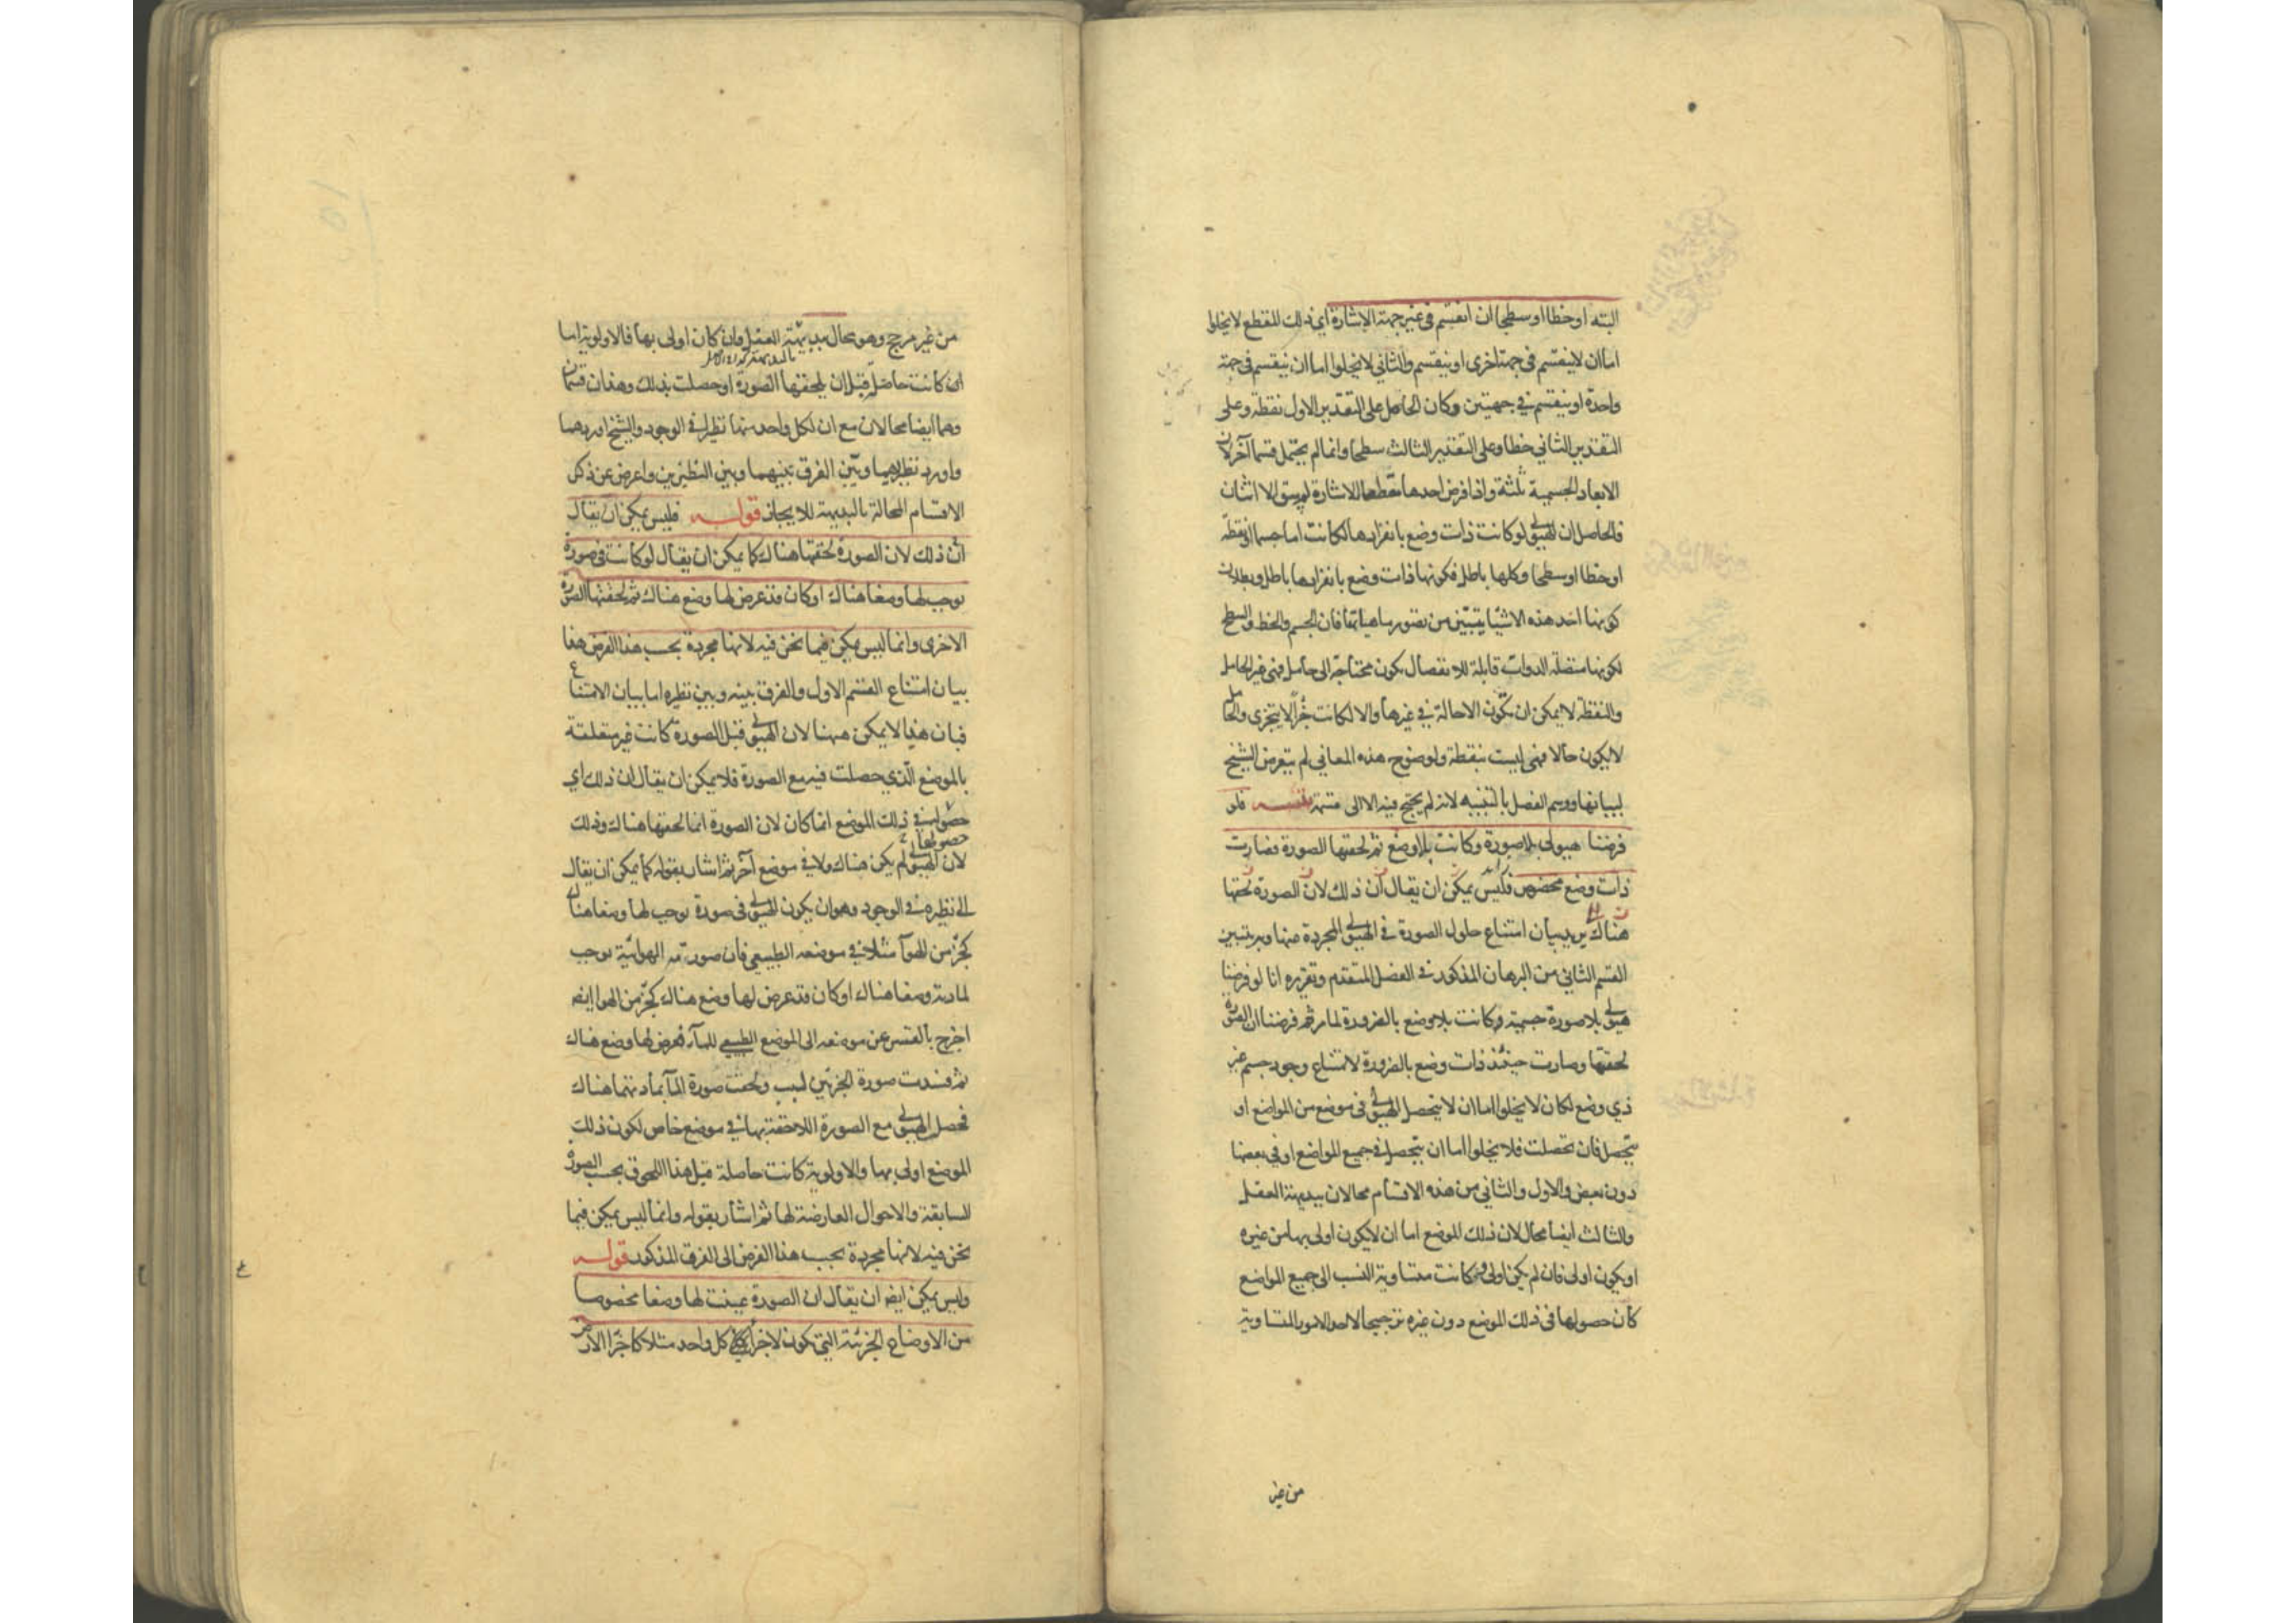 البته او خطا او سطحا ان انقسم في غير جهة الاشارة اي ذلك المقطع لا يخلوا
اما ان لا ينقسم في جهة اخرى او ينقسم والثاني لا يخلوا اما ان ينقسم في جهة
واحدة او ينقسم في جهتين وكان الحاصل على التقدير الاول نقطة وعلى
التقدير الثاني خطا وعلى التقدير الثالث سطحا وانما لم يحتمل قسما آخر لان
الابعاد الجسمية ثلثة واذا فرض احدها مقطعا للاشارة لم يبق الا اثنان
فالحاصل ان الهيولى لو كانت ذات وضع بانفرادها لكانت اما جسما او نقطة
او خطا او سطحا وكلها باطل فكونها ذات وضع بانفرادها باطل وبطلان
كونها احد هذه الاشيا يتبين من تصور ماهياتها فان الجسم والخط والسطح
لكونها متصلة الذوات قابلة للانفصال يكون محتاجة الى حامل فهى غير الحامل
والنقطة لا يمكن ان تكون الا حالة في غيرها والا لكانت جزأ لا يتجزى والحامل
لا يكون حالا فهى ليست بنقطة ولوضوح هذه المعاني لم يتعرض الشيخ
لبيانها ووسم الفصل بالتنبيه لانه لم يحتج فيه الا الى قسمة تنبيه فلو
فرضنا هيولى بلا صورة وكانت بلا وضع ثم لحقتها الصورة فصارت
ذات وضع مخصوص فليس يمكن ان يقال ان ذلك لان الصورة لحقتها
هناك يريد بيان امتناع حلول الصورة في الهيولى المجردة عنها وبه يتبين
القسم الثاني من البرهان المذكور في الفصل المتقدم وتقريره انا لو فرضنا
هيولى بلا صورة جسمية وكانت بلا وضع بالضرورة لما مر ثم فرضنا ان الصورة
لحقتها وصارت حينئذ ذات وضع بالضرورة لامتناع وجود جسم غير
ذي وضع لكان لا يخلوا اما ان لا يتحصل الهيولى في موضع من المواضع او
يتحصل فان تحصلت فلا يخلوا اما ان يتحصل في جميع المواضع او في بعضها
دون بعض والاول والثاني من هذه الاقسام محالان ببديهة العقل
والثالث ايضا محال لان ذلك الموضع اما ان لا يكون اولى بها من غيره
او يكون اولى فان لم يكن اولى وكانت متساوية النسب الى جميع المواضع
كان حصولها في ذلك الموضع دون غيره ترجيحا لاحد الامور المتساوية
من غير
من غير مرجح وهو محال ببديهة العقل وان كان اولى بها فالاولوية اما
ان كانت حاصلة قبل ان يلحقها الصورة او حصلت بذلك وهذان قسمان
وهما ايضا محالان مع ان لكل واحد منهما نظيرا في الوجود والشيخ اوردهما
واورد نظيريهما وبين الفرق بينهما وبين النظيرين واعرض عن ذكر
الاقسام المحالة بالبديهة للايجاز قوله فليس يمكن ان يقال
ان ذلك لان الصورة لحقتها هناك كما يمكن ان يقال لو كانت في صورة
يوجب لها وضعا هناك او كان قد عرض لها وضع هناك ثم لحقتها الصورة
الاخرى وانما ليس يمكن فيما نحن فيه لانها مجردة بحسب هذا الفرض هذا
بيان امتناع القسم الاول والفرق بينه وبين نظيره اما بيان الامتناع
فبان هذا لا يمكن ههنا لان الهيولى قبل الصورة كانت غير متعلقة
بالموضع الذي حصلت فيه مع الصورة فلا يمكن ان يقال ان ذلك اي
حصولها في ذلك الموضع انما كان لان الصورة انما لحقتها هناك وذلك
لان الهيولى لم يكن هناك ولا في موضع آخر ثم اشار بقوله كما يمكن ان يقال
الى نظيره في الوجود وهو ان يكون الهيولى في صورة يوجب لها وضعا هناك
كجزء من الهوآ مثلا في موضعه الطبيعي فان صورته الهوائية يوجب
لمادته وضعا هناك او كان قد عرض لها وضع هناك كجزء من الهوا ايضا
اخرج بالقسر عن موضعه الى الموضع الطبيعي للمآ فعرض لها وضع هناك
ثم فسدت صورة الجزئين لسبب ولحقت صورة المآ بمادتهما هناك
فحصل الهيولى مع الصورة اللاحقة بها في موضع خاص لكون ذلك
الموضع اولى بها والاولوية كانت حاصلة قبل هذا اللحوق بحسب الصورة
السابقة والاحوال العارضة لها ثم اشار بقوله وانما ليس يمكن فيما
نحن فيه لانها مجردة بحسب هذا الفرض الى الفرق المذكور قوله
وليس يمكن ايضا ان يقال ان الصورة عينت لها وضعا مخصوصا
من الاوضاع الجزئية التي تكون لاجزأ كل واحد مثلا كاجزأ الارض